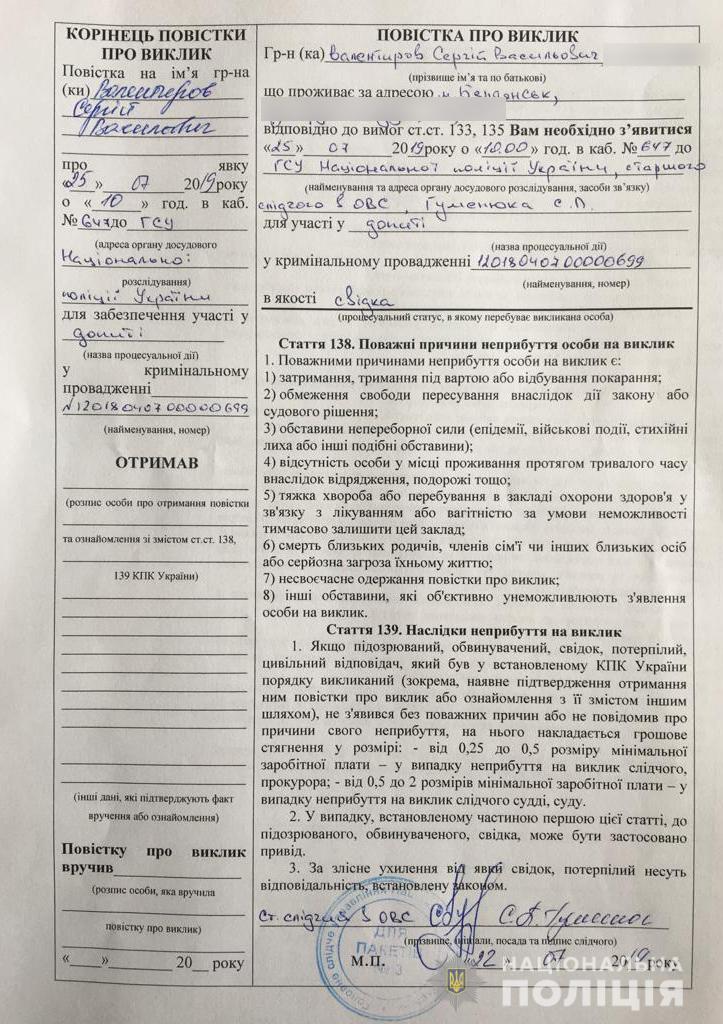 КОРІНЕЦЬ ПОВІСТКИ
ПРО ВИКЛИК
Повістка на ім’я гр-на
(ки)
Сергій
Василович
про явку
«25» 07 2019 року
о « 10 » год. в каб.
№ 647 до ГСУ
(адреса органу досудового
Національної
розслідування)
поліції України
для забезпечення участі у
допиті
(назва процесуальної дії)
у кримінальному
провадженні
№12018040700000699
(найменування, номер)
ОТРИМАВ
(розпис особи про отримання повістки
та ознайомлення зі змістом ст.ст. 138,
139 КПК України)
(інші дані, які підтверджують факт
вручення або ознайомлення)
Повістку про виклик
вручив
(розпис особи, яка вручила
повістку про виклик)
« » 20 року
ПОВІСТКА ПРО ВИКЛИК
Гр-н (ка) Валентиров Сергій Васильович
(прізвище ім’я та по батькові)
що проживає за адресою м.
відповідно до вимог ст.ст. 133, 135 Вам необхідно з’явитися
«25» 07 2019 року о «10.00» год. в каб. №647 до
ГСУ Національної поліції України, старшого
(найменування та адреса органу досудового розслідування, засоби зв’язку)
слідчого в ОВС, Гуменюка С.П.
для участі у допиті
(назва процесуальної дії)
у кримінальному провадженні 12018040700000699
(найменування, номер)
в якості свідка
(процесуальний статус, в якому перебуває викликана особа)
Стаття 138. Поважні причини неприбуття особи на виклик
1. Поважними причинами неприбуття особи на виклик є:
1) затримання, тримання під вартою або відбування покарання;
2) обмеження свободи пересування внаслідок дії закону або
судового рішення;
3) обставини непереборної сили (епідемії, військові події, стихійні
лиха або інші подібні обставини);
4) відсутність особи у місці проживання протягом тривалого часу
внаслідок відрядження, подорожі тощо;
5) тяжка хвороба або перебування в закладі охорони здоров'я у
зв'язку з лікуванням або вагітністю за умови неможливості
тимчасово залишити цей заклад;
6) смерть близьких родичів, членів сім'ї чи інших близьких осіб
або серйозна загроза їхньому життю;
7) несвоєчасне одержання повістки про виклик;
8) інші обставини, які об'єктивно унеможливлюють з'явлення
особи на виклик.
Стаття 139. Наслідки неприбуття на виклик
1. Якщо підозрюваний, обвинувачений, свідок, потерпілий,
цивільний відповідач, який був у встановленому КПК України
порядку викликаний (зокрема, наявне підтвердження отримання
ним повістки про виклик або ознайомлення з її змістом іншим
шляхом), не з'явився без поважних причин або не повідомив про
причини свого неприбуття, на нього накладається грошове
стягнення у розмірі: - від 0,25 до 0,5 розміру мінімальної
заробітної плати – у випадку неприбуття на виклик слідчого,
прокурора; - від 0,5 до 2 розмірів мінімальної заробітної плати – у
випадку неприбуття на виклик слідчого судді, суду.
2. У випадку, встановленому частиною першою цієї статті, до
підозрюваного, обвинуваченого, свідка, може бути застосовано
привід.
3. За злісне ухилення від явки свідок, потерпілий несуть
відповідальність, встановлену законом.
Ст. слідчий в ОВС
(прізвище, ініціали, посада та підпис слідчого)
М.П. «22» 07 2019 року
ДЛЯ
ПАКЕТІВ
НАЦІОНАЛЬНА
ПОЛІЦІЯ